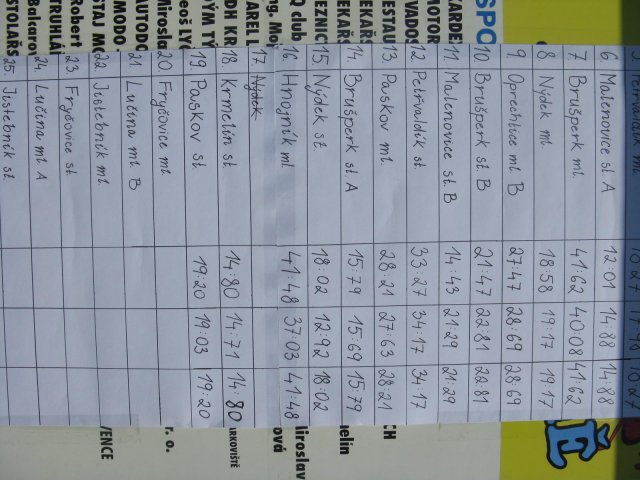 SPO
KARDE
MOTOR
VADOS
6 Malenovice st. A 12:01 14:88 14:88
7. Brušperk ml. 41:62 40:08 41:62
8 Nýdek ml. 18:58 19:17 19:17
9. Oprechtice ml. B 27:47 28:69 28:69
10 Brušperk st. B 21:47 22:81 22:81
11. Malenovice st. B 14:43 21:29 21:29
12 Petřvaldík ml. 33:27 34:17 34:17
13. Paskov ml. 28:21 27:63 28:21
14. Brušperk st. A 15:79 15:69 15:79
15. Nýdek st. 18:02 12:92 18:02
16. Hnojník ml. 41:48 37:03 41:48
17 Nýdek
18. Krmelín st. 14:80 14:71 14:80
19 Paskov st. 19:20 19:03 19:20
20. Fryčovice ml.
21. Lučina ml. B
22 Jistebník ml.
23 Fryčovice st.
24. Lučina ml. A
25 Jistebník st.
Q club
DH KR
Miroslav
AUTODO
MODO -
STAJ MO
Robert
TRUHLÁ
Balkarov
STOLAŘS
CH
melín
Miroslav
ová
ARKOVIŠTĚ
r. o.
VENCE